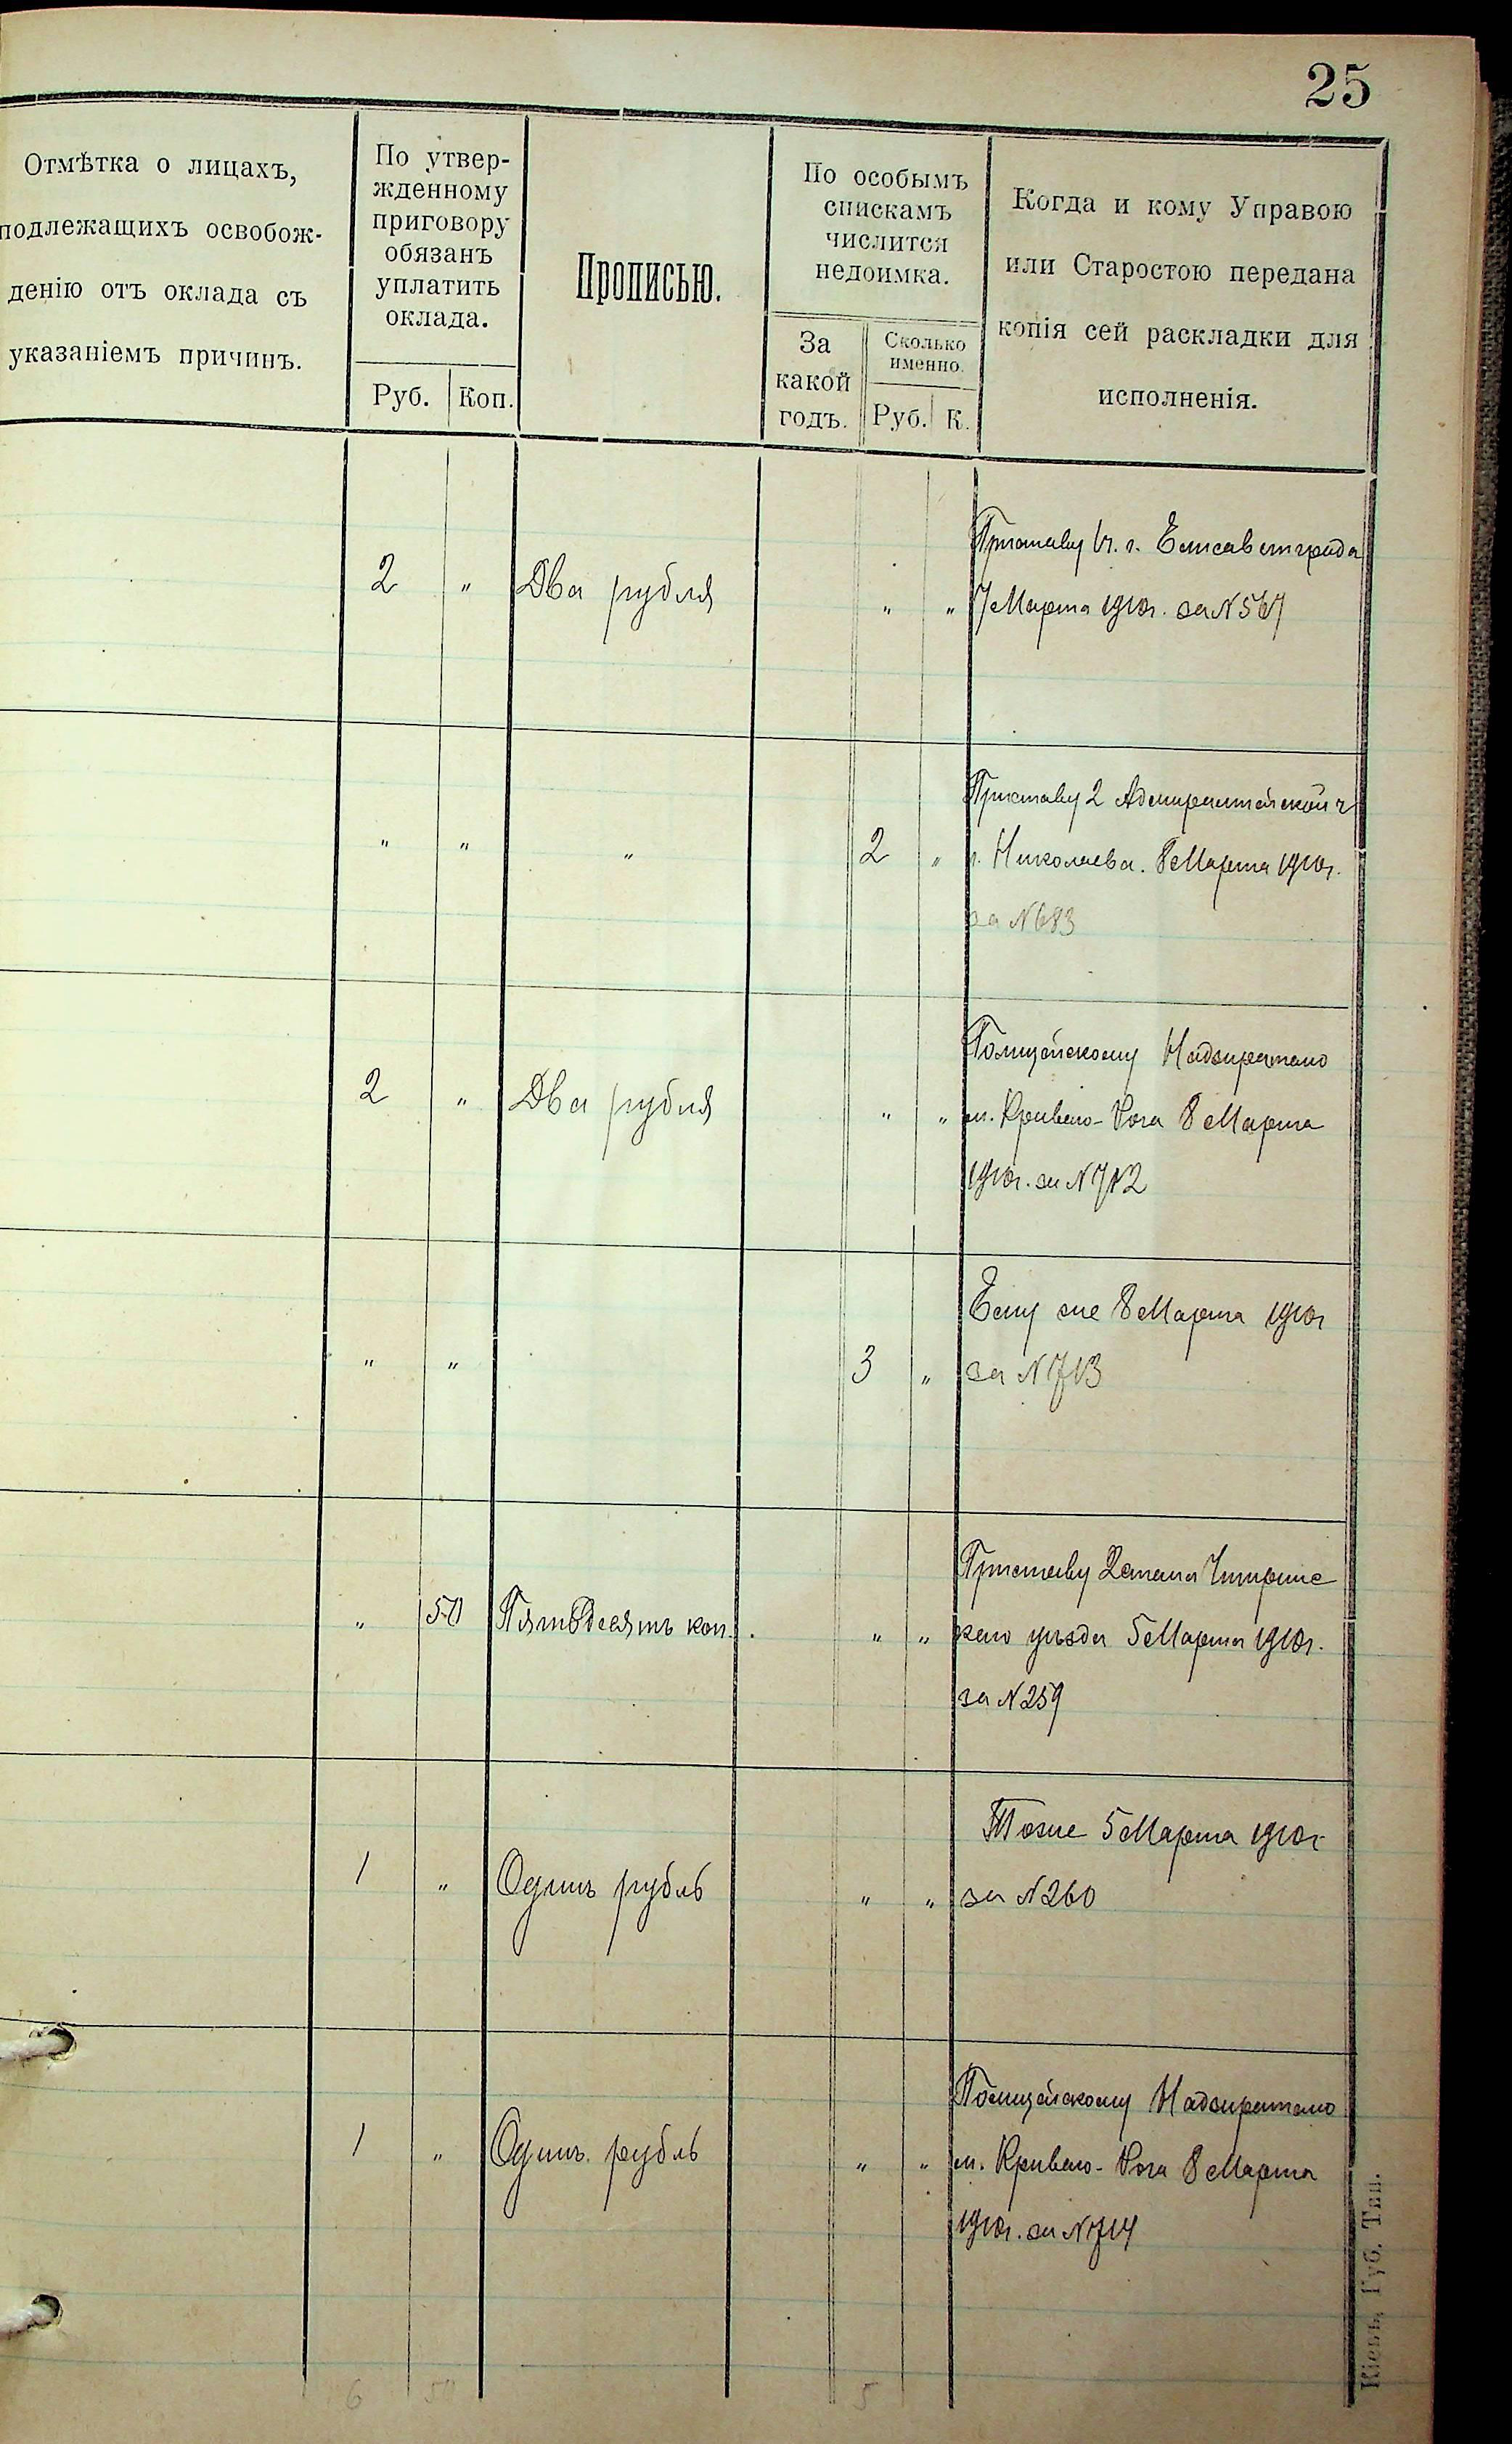 25
Отмѣтка о лицахъ,
подлежащихъ освобож-
денію отъ оклада съ
указаніемъ причинъ.
По утвер-
жденному
приговору
обязанъ
уплатить
оклада.
Руб. Коп.
Прописью.
По особымъ
спискамъ
числится
недоимка.
За
какой
годъ.
Сколько
именно.
Руб. К.
Когда и кому Управою
или Старостою передана
копія сей раскладки для
исполненія.
Приставу г. Елисаветграда
2 " Два рубля " " 7 Марта 1910г. за N 567
Приставу 2 Адмиралтейской ч
" " " 2 " г. Николаева. 8 Марта 1910г.
за N 683
Полицейскому Надзирателю
2 " Два рубля " " м. Кривого-Рога 8 Марта
1910г. за N 712
Ему же 8 Марта 1910г
" " 3 " за N 713
Приставу 2 стана Чигиринс
" 50 Пятьдесятъ коп. " " кого уѣзда 5 Марта 1910г.
за N 259
Тоже 5 Марта 1910г
1 " Одинъ рубль " " за N 260
Полицейскому Надзирателю
1 " Одинъ рубль " " м. Кривого-Рога 8 Марта
1910г. за N 714
6 50 5
Кіевъ, Губ. Тип.